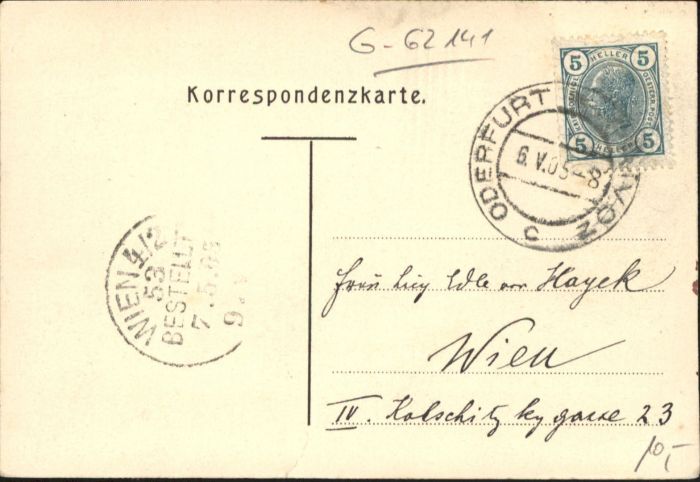 G-62141
Korrespondenzkarte.
5 HELLER 5
5 HELLER 5
ODERFURT
6.V.05-8
C
WIEN 4/2
53
BESTELLT
7.5.05
9
Frau Edle von Hayek
Wien
IV. Kolschitzkygasse 23
10,-